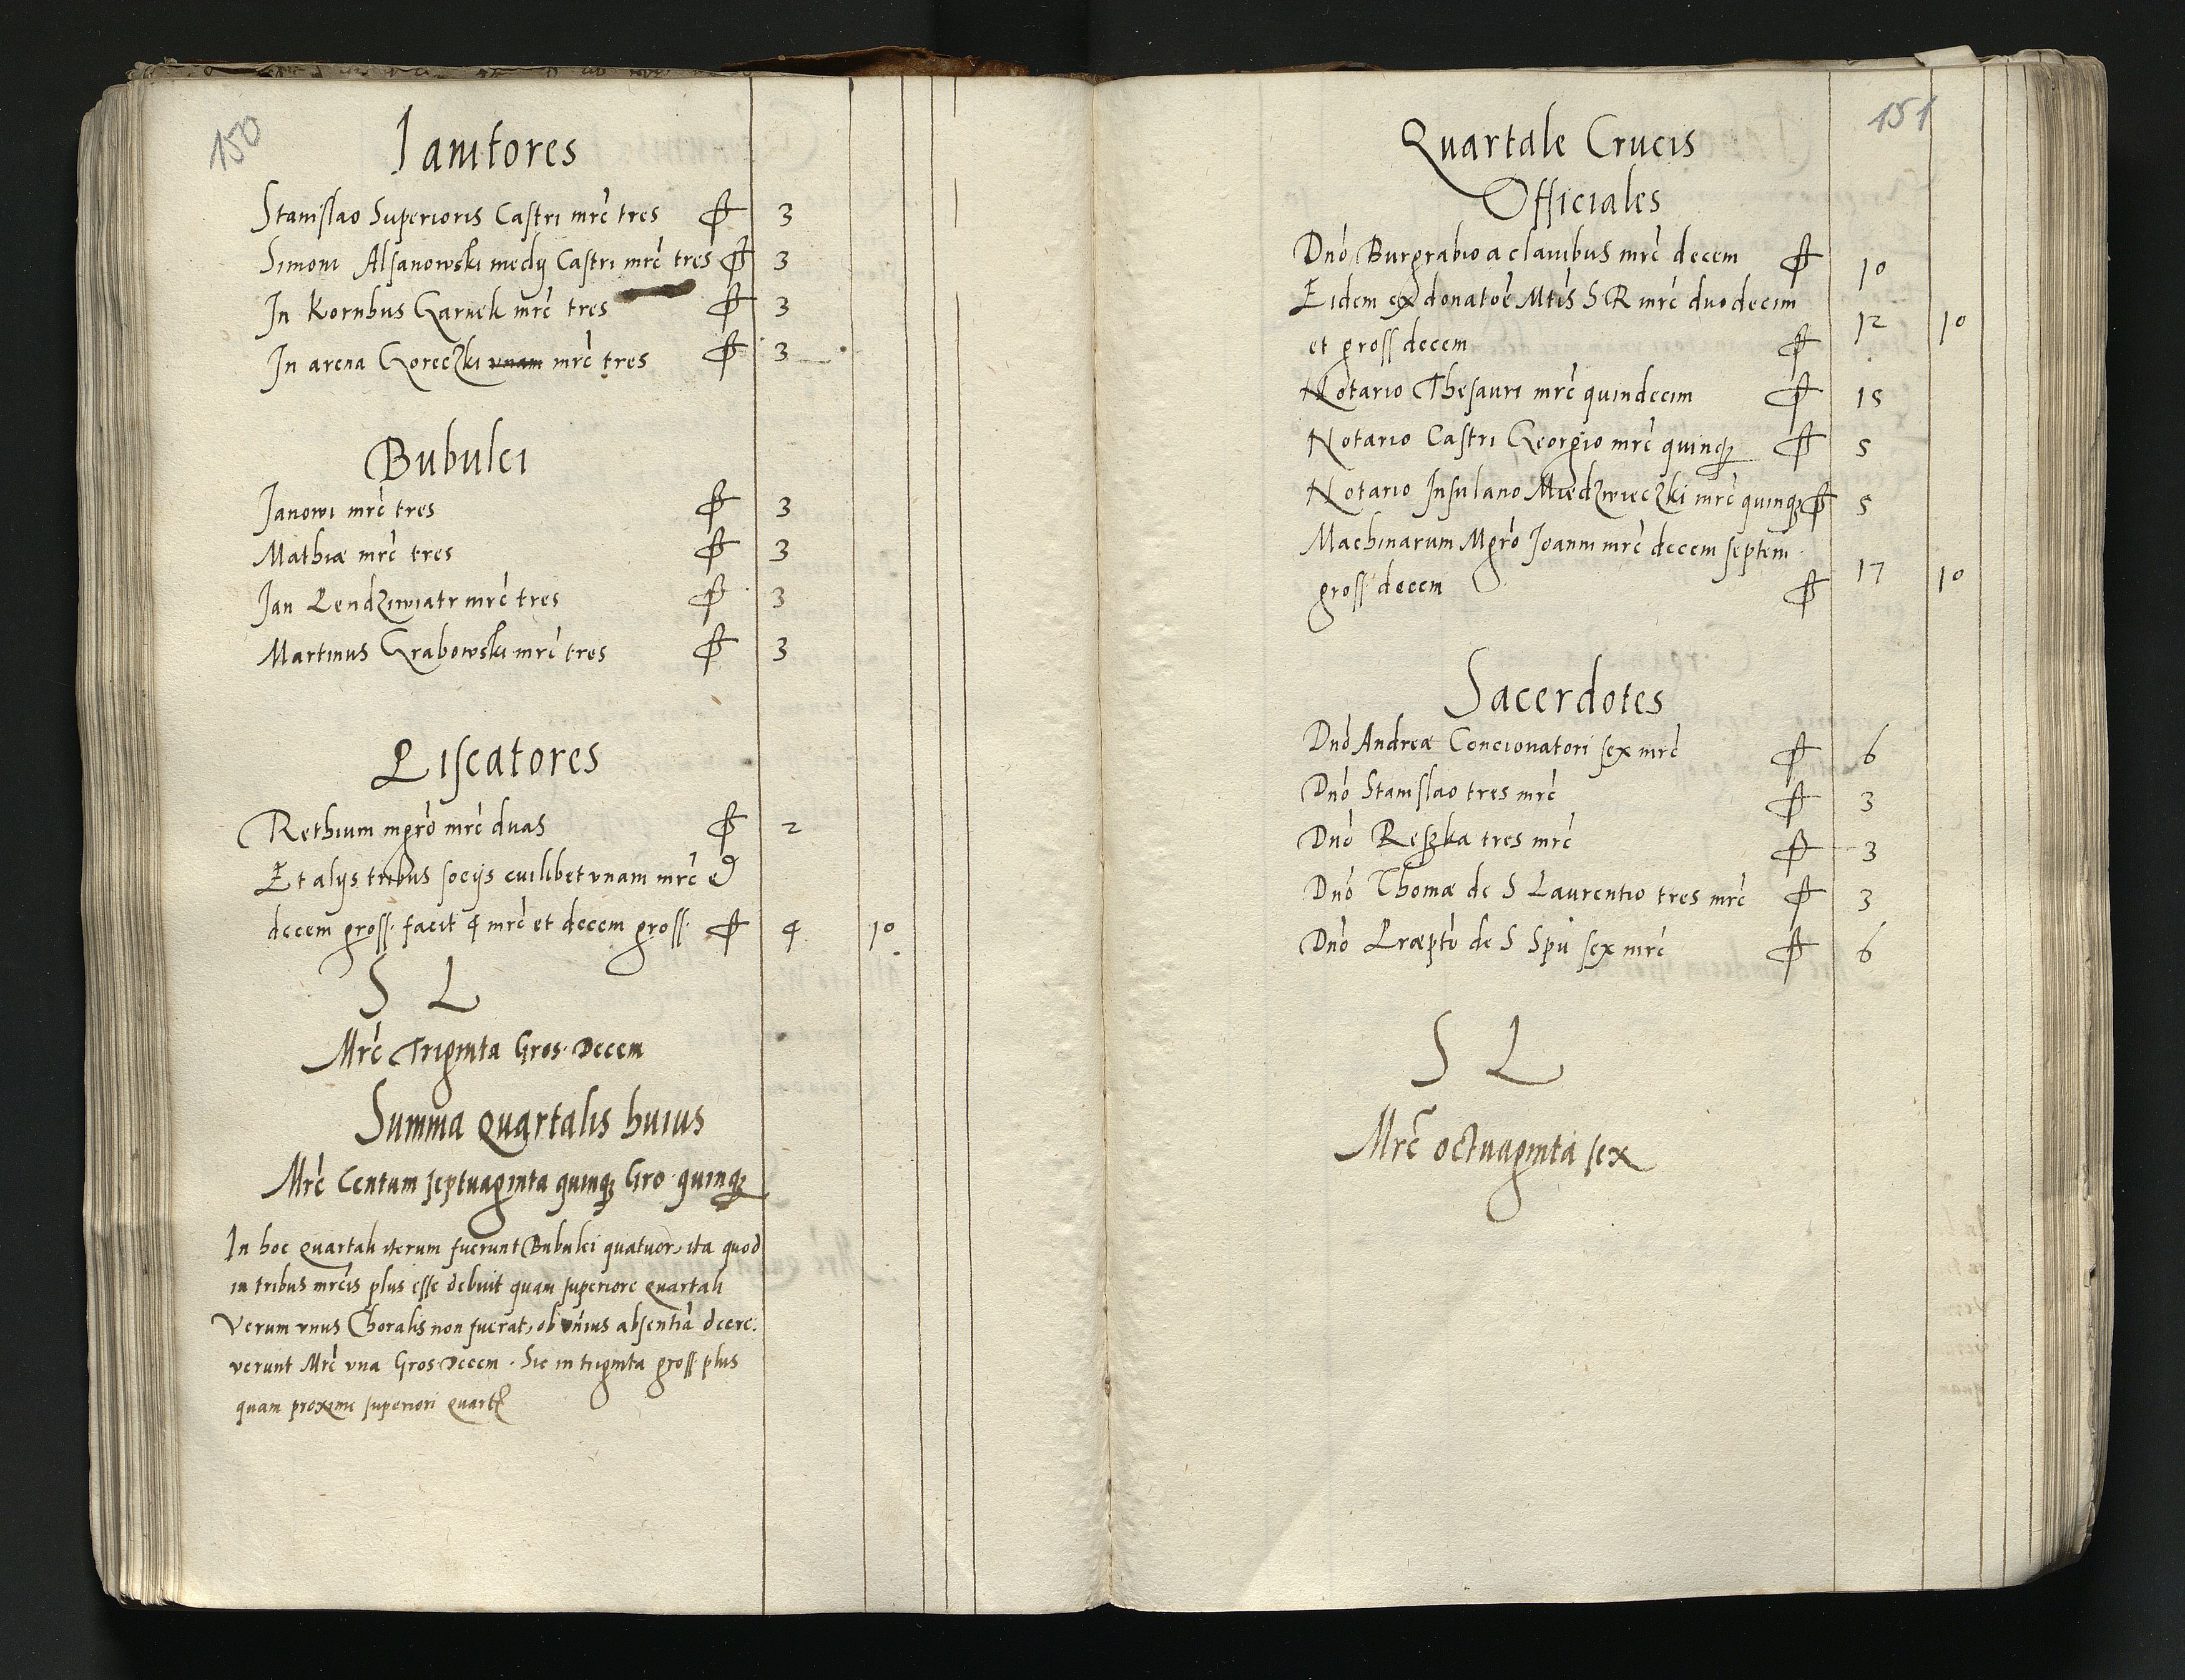 150
Ianitores
Stanislao Superioris Castri mrč tres ₰ 3
Simoni Alsanowski medij Castri mrč tres ₰ 3
In Kornhus Garnek mrč tres ₰ 3
In arena Goreczki vnam mrč tres ₰ 3
Bubulci
Janowi mrč tres ₰ 3
Mathiæ mrč tres ₰ 3
Jan Lendziwiatr mrč tres ₰ 3
Martinus Grabowski mrč tres ₰ 3
Piscatores
Rethium mgrō mrč duas ₰ 2
Et alijs tribus socijs cuilibet vnam mrč et
decem gross. facit 4 mrč et decem gross. ₰ 4 10
S L
Mrč Triginta Gros. Decem
Summa Quartalis huius
Mrč Centum septuaginta quinq3 Gro. quinq3
In hoc Quartali iterum fuerunt Bubulci quatuor, ita quod
in tribus mrcis plus esse debuit quam superiore Quartali
Verum vnus Choralis non fuerat, ob vnius absentiā decre:
verunt Mrč vna Gros Decem. Sic in triginta gross. plus
quam proxime superiori Quartl
151
Quartale Crucis
Officiales
Dnō Burgrabio a clauibus mrč decem ₰ 10
Eidem ex donatoē Mtis S R mrč duodecim
et gross decem ₰ 12 10
Notario Thesauri mrč quindecim ₰ 15
Notario Castri Georgio mrč quinq3 ₰ 5
Notario Insulano Miedzwieczki mrč quinq3 ₰ 5
Machinarum Mgrō Joanni mrč decem septem
gross. decem ₰ 17 10
Sacerdotes
Dnō Andreæ Concionatori sex mrč ₰ 6
Dnō Stanislao tres mrč ₰ 3
Dnō Reszka tres mrč ₰ 3
Dnō Thomæ de S Laurentio tres mrč ₰ 3
Dnō Præptō de S Spū sex mrč ₰ 6
S L
Mrč octuaginta sex